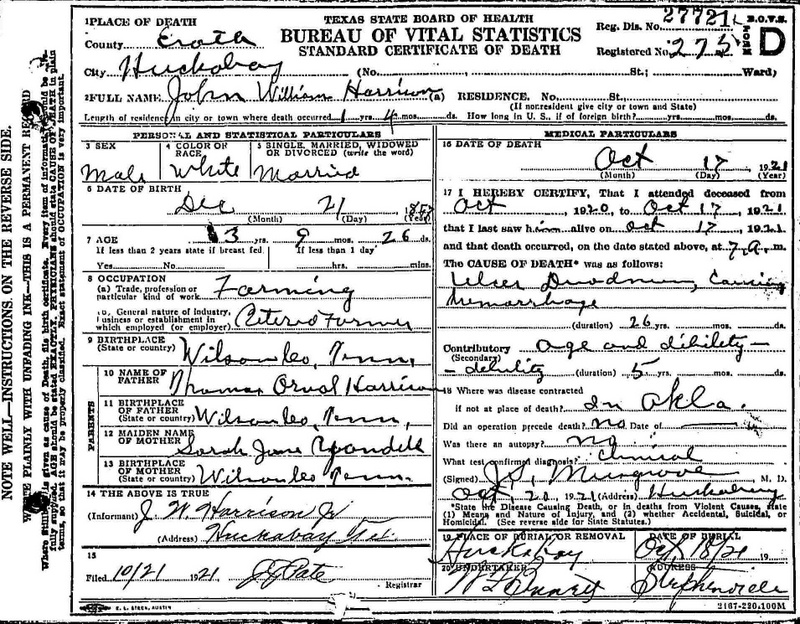 TEXAS STATE BOARD OF HEALTH
BUREAU OF VITAL STATISTICS
STANDARD CERTIFICATE OF DEATH
Reg. Dis. No. 27721
B.O.V.S.
Registered No. 275
D
1 PLACE OF DEATH
County Erath
City Huckabay (No. St.; Ward)
2 FULL NAME John William Harrison (a) RESIDENCE. No. St.
(If nonresident give city or town and State)
Length of residence in city or town where death occurred 1 yrs. 4 mos. ds. How long in U. S., if of foreign birth? yrs. mos. ds.
PERSONAL AND STATISTICAL PARTICULARS
3 SEX
Male
4 COLOR OR RACE
White
5 SINGLE, MARRIED, WIDOWED OR DIVORCED (write the word)
Married
6 DATE OF BIRTH
Dec 21
(Month) (Day) (Year)
7 AGE 3 yrs. 9 mos. 26 ds.
If less than 2 years state if breast fed If less than 1 day
Yes No hrs. mins.
8 OCCUPATION
(a) Trade, profession or particular kind of work Farming
(b) General nature of industry, business or establishment in which employed (or employer) Retired Farmer
9 BIRTHPLACE
(State or country) Wilson Co, Tenn,
PARENTS
10 NAME OF FATHER Thomas Orval Harrison
11 BIRTHPLACE OF FATHER
(State or country) Wilson Co, Tenn,
12 MAIDEN NAME OF MOTHER Sarah Jane Yandell
13 BIRTHPLACE OF MOTHER
(State or country) Wilson Co Tenn.
14 THE ABOVE IS TRUE
(Informant) J. W. Harrison Jr
(Address) Huckabay Tex.
15
Filed 10/21 1921 Pate Registrar
MEDICAL PARTICULARS
16 DATE OF DEATH
Oct 17 1921
(Month) (Day) (Year)
17 I HEREBY CERTIFY, That I attended deceased from
Oct , 1920, to Oct 17, 1921
that I last saw him alive on Oct 17, 1921
and that death occurred, on the date stated above, at 7 a m.
The CAUSE OF DEATH* was as follows:
Ulcer Duodenum, Causing
hemorrhage
(duration) 26 yrs. mos. ds.
Contributory Age and debility—
(Secondary)
debility (duration) 5 yrs. mos. ds.
18 Where was disease contracted
if not at place of death? in Okla.
Did an operation precede death? no Date of
Was there an autopsy? no
What test confirmed diagnosis? Clinical
(Signed) Musgrove M. D.
Oct, 20, 1921 (Address) Huckabay
*State the Disease Causing Death, or in deaths from Violent Causes, state
(1) Means and Nature of Injury, and (2) whether Accidental, Suicidal, or
Homicidal. (See reverse side for State Statutes.)
19 PLACE OF BURIAL OR REMOVAL
Huckabay
DATE OF BURIAL
Oct 18/21 19
20 UNDERTAKER
ADDRESS
Stephenville
E. L. STECK, AUSTIN
2167-220.100M
NOTE WELL—INSTRUCTIONS ON THE REVERSE SIDE.
WRITE PLAINLY WITH UNFADING INK—THIS IS A PERMANENT RECORD